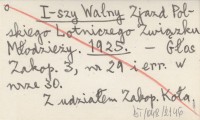 I-szy Walny Zjazd Pol-
skiego Lotniczego Związku
Młodzieży. 1925. — Głos
Zakop. 3, nr 29 i err. w
nrze 30.
Z udziałem Zakop. Koła.